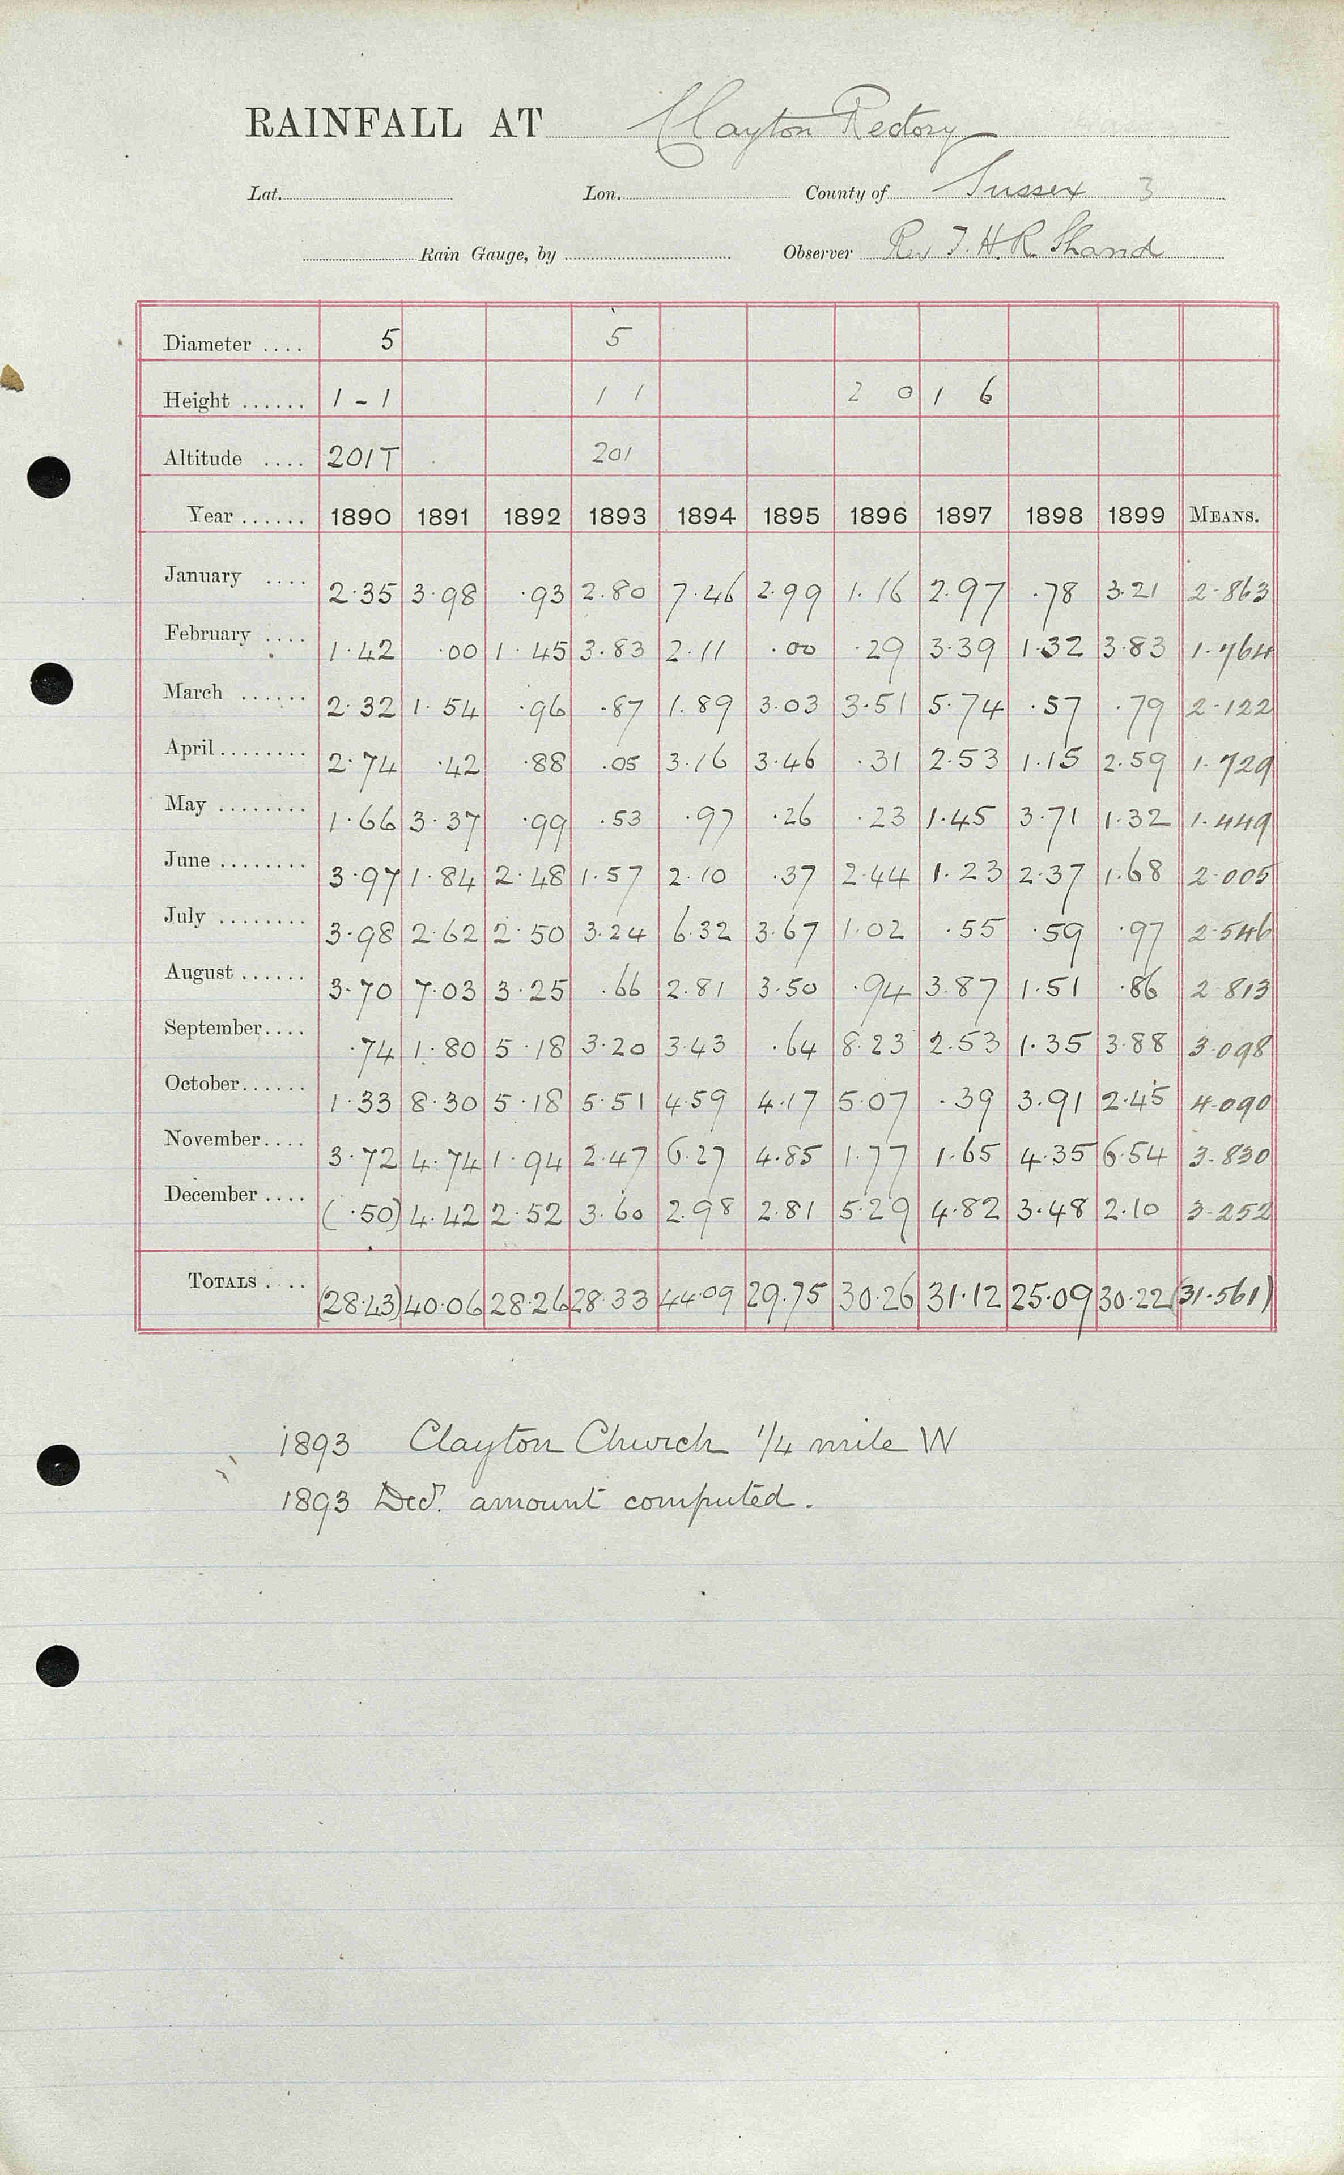 RAINFALL AT Clayton Rectory
Lat. Lon. County of Sussex 3
Rain Gauge, by Observer Rev T. H. R. Shand
Diameter .... 5 5
Height ...... 1 - 1 1 1 2 0 1 6
Altitude .... 201T 201
Year ...... 1890 1891 1892 1893 1894 1895 1896 1897 1898 1899 MEANS.
January .... 2.35 3.98 .93 2.80 7.46 2.99 1.16 2.97 .78 3.21 2.863
February .... 1.42 .00 1.45 3.83 2.11 .00 .29 3.39 1.32 3.83 1.764
March ...... 2.32 1.54 .96 .87 1.89 3.03 3.51 5.74 .57 .79 2.122
April ........ 2.74 .42 .88 .05 3.16 3.46 .31 2.53 1.15 2.59 1.729
May ........ 1.66 3.37 .99 .53 .97 .26 .23 1.45 3.71 1.32 1.449
June ........ 3.97 1.84 2.48 1.57 2.10 .37 2.44 1.23 2.37 1.68 2.005
July ........ 3.98 2.62 2.50 3.24 6.32 3.67 1.02 .55 .59 .97 2.546
August ...... 3.70 7.03 3.25 .66 2.81 3.50 .94 3.87 1.51 .86 2.813
September.... .74 1.80 5.18 3.20 3.43 .64 8.23 2.53 1.35 3.88 3.098
October...... 1.33 8.30 5.18 5.51 4.59 4.17 5.07 .39 3.91 2.45 4.090
November.... 3.72 4.74 1.94 2.47 6.27 4.85 1.77 1.65 4.35 6.54 3.830
December .... (.50) 4.42 2.52 3.60 2.98 2.81 5.29 4.82 3.48 2.10 3.252
TOTALS .... (28.43) 40.06 28.26 28.33 44.09 29.75 30.26 31.12 25.09 30.22 (31.561)
1893 Clayton Church 1/4 mile W
1893 Decr. amount computed.